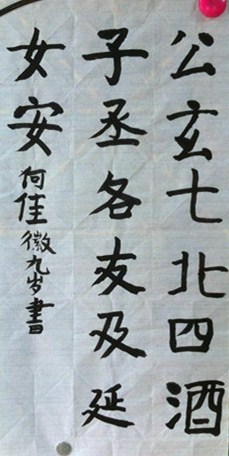 公玄七北四酒
子丞各友及延
女安
何佳徽九岁書